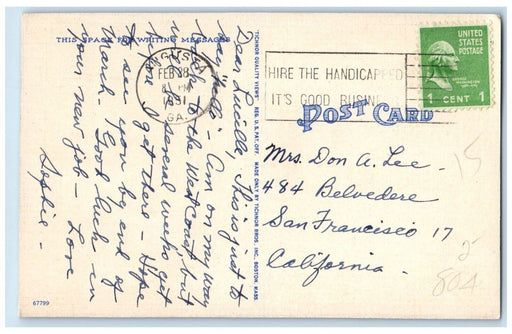 THIS SPACE FOR WRITING MESSAGES
Dear Lucille, This is just to
say "hello" - Am on my way
to the West Coast, but
several weeks yet
before I get there - Hope
to see you by end of
March. Good luck in
your new job - Love
Sophie -
67799
TICHNOR QUALITY VIEWS REG. U. S. PAT. OFF. MADE ONLY BY TICHNOR BROS., INC., BOSTON, MASS.
AUGUSTA
FEB 28
PM
1951
GA.
HIRE THE HANDICAPPED
IT'S GOOD BUSIN
UNITED STATES
POSTAGE
1 CENT 1
POST CARD
Mrs. Don A. Lee -
484 Belvedere
San Francisco 17
California -
15
2
804